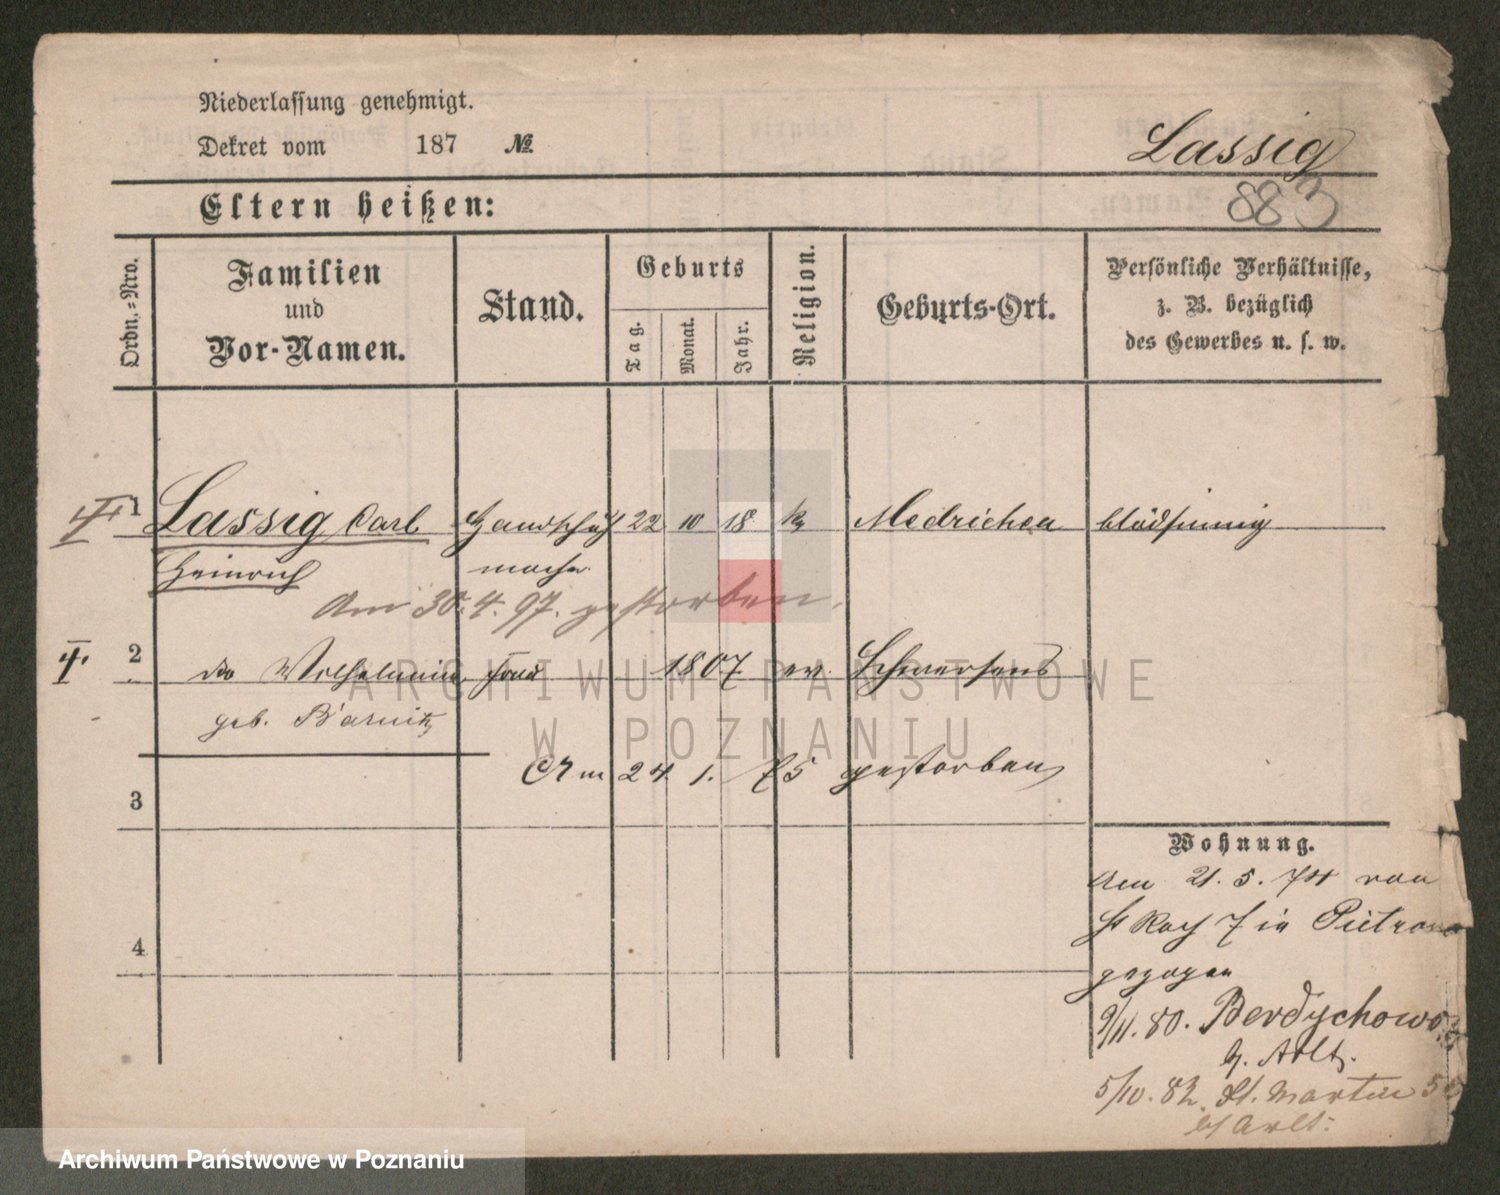 Niederlassung genehmigt.
Dekret vom 187 №
Lassig
883
Eltern heißen:
Ordn.-Nro.
Familien
und
Vor-Namen.
Stand.
Geburts
Tag.
Monat.
Jahr.
Religion.
Geburts-Ort.
Persönliche Verhältnisse,
z. B. bezüglich
des Gewerbes u. s. w.
1 Lassig Carl Handschuh 22 10 18 k Medrichen blödsinnig
Heinrich macher
Am 30.4.97. gestorben.
2 do Wilhelmine Frau 1807 ev Schwersenz
geb. Barnitz
Am 24. 1. 75 gestorben
3
4
Wohnung.
Am 21. 5. 74 von
St Roch 7 in Pietrowo
gezogen
9/11. 80. Berdychowo
b. Arlt.
5/10. 82. St. Martin
b/ Arlt.
ARCHIWUM PAŃSTWOWE
W POZNANIU
Archiwum Państwowe w Poznaniu